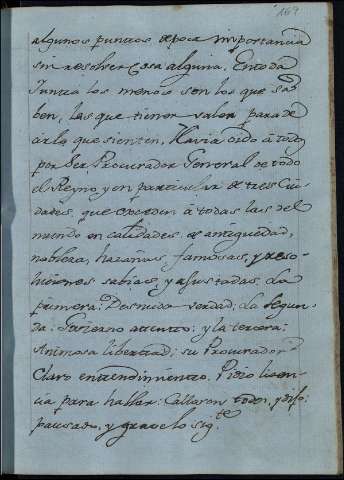 169
algunos puntos de poca importancia
sin resolver cosa alguna. En toda
Junta los menos son los que sa-
ben, las que tienen valor para de-
cir lo que sienten. Havia oido á todos
por ser Procurador General de todo
el Reyno, y en particular de tres Ciu-
dades, que exceden á todas las del
mundo en calidades de antiguedad,
nobleza, hazañas famosas, y reso-
luciones sabias, y ajustadas. La
primera: Desnuda verdad; La Segun-
da: atento; y la tercera:
Animosa libertad; su Procurador
Claro entendimiento. Pidio licen-
cia para hablar: Callaron todos, y dijo:
pausado, y grave lo sig.te